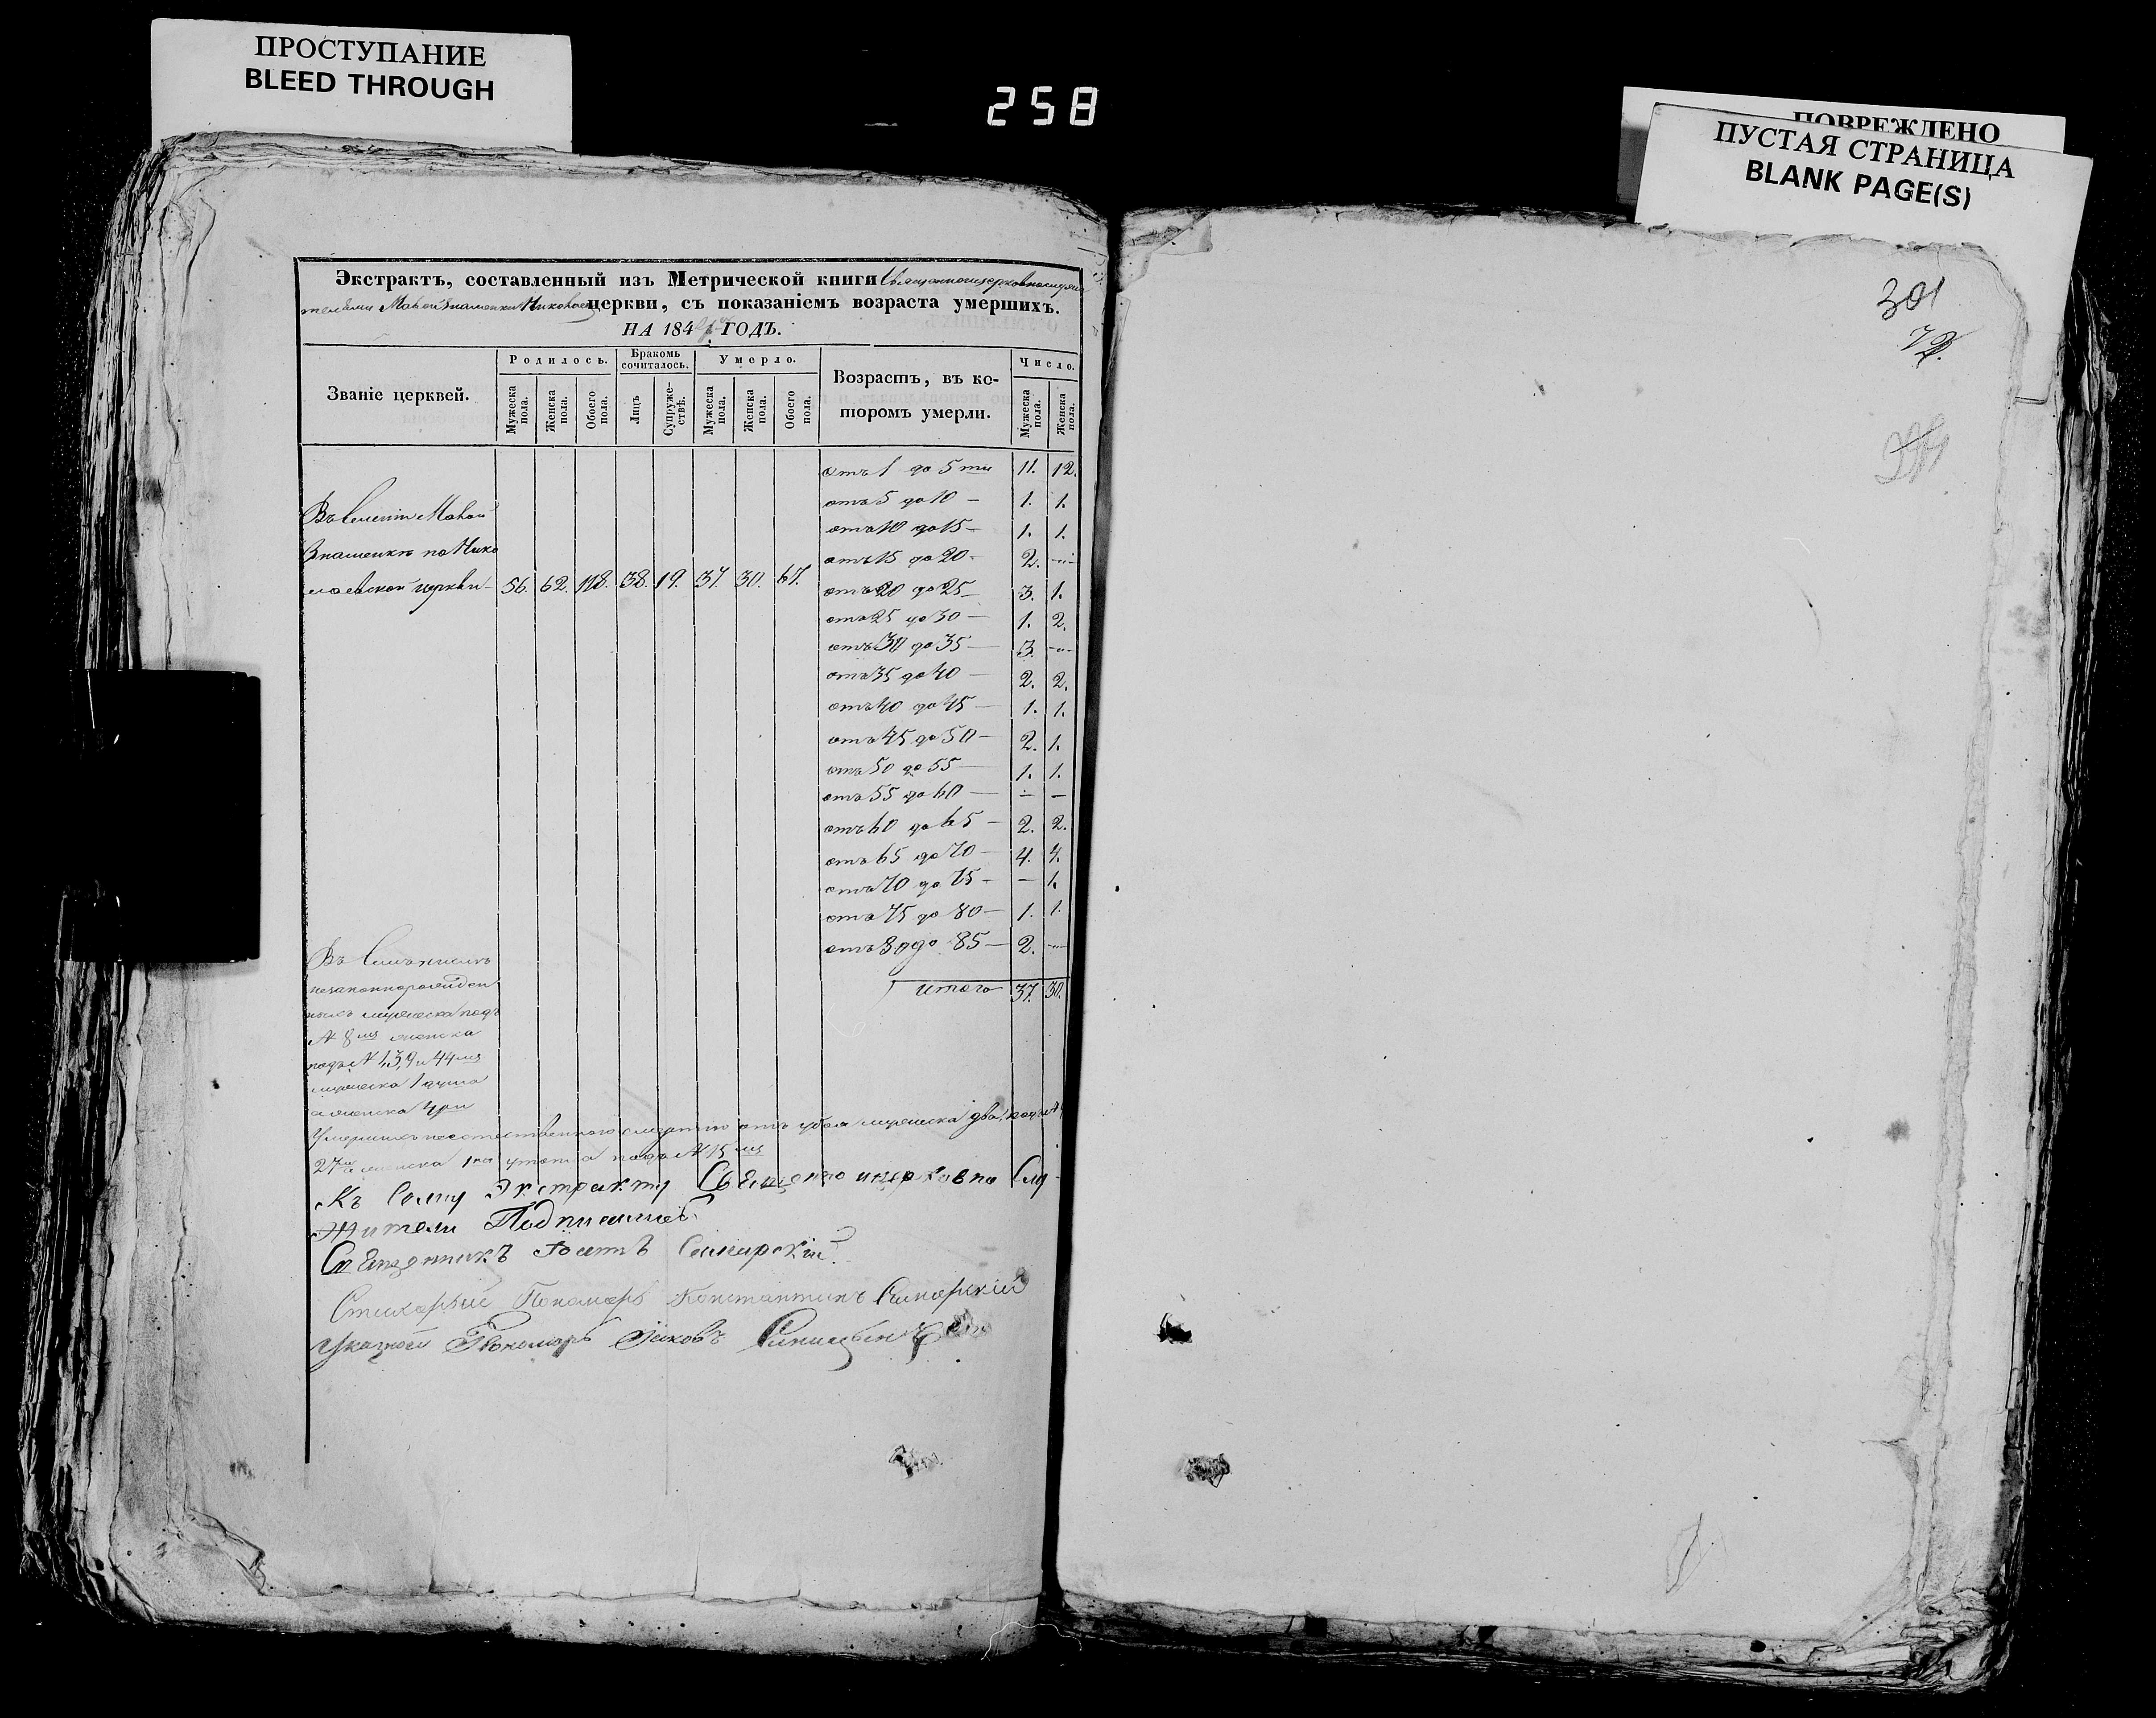 ПРОСТУПАНИЕ
BLEED THROUGH
258
ПОВРЕЖДЕНО
ПУСТАЯ СТРАНИЦА
BLANK PAGE(S)
Экстрактъ, составленный изъ Метрической книги Священноцерковнослужи
телями Малой Знаменки Николаев церкви, съ показаніемъ возраста умершихъ.
НА 184 ГОДЪ.
Званіе церквей.
Родилось.
Бракомъ сочиталось.
Умерло.
Возрастъ, въ ко-
торомъ умерли.
Число.
Мужеска пола.
Женска пола.
Обоего пола.
Лицъ
Супруже-ствъ.
Мужеска пола.
Женска пола.
Обоего пола.
Мужеска пола.
Женска пола.
отъ 1 до 5 ти 11. 12.
отъ 5 до 10 – 1. 1.
Въ Селеніи Малой
отъ 10 до 15 – 1. 1.
Знаменкѣ по Нико
отъ 15 до 20 – 2. –
лаевской церкви – 56. 62. 118. 38. 19. 37. 30. 67.
отъ 20 до 25 – 3. 1.
отъ 25 до 30 – 1. 2.
отъ 30 до 35 – 3. –
отъ 35 до 40 – 2. 2.
отъ 40 до 45 – 1. 1.
отъ 45 до 50 – 2. 1.
отъ 50 до 55 – 1. 1.
отъ 55 до 60 – – –
отъ 60 до 65 – 2. 2.
отъ 65 до 70 – 4. 4.
отъ 70 до 75 – – 1.
отъ 75 до 80 – 1. 1.
отъ 80 до 85 – 2. –
итого 37. 30.
Въ Семъ числѣ
незаконнорожден
ныхъ мужеска подъ
№ 8 мъ женска
подъ № 1, 3, 9 и 44 мъ
мужеска 1 душа
а женска
Умершихъ неестественною смертію отъ мужеска два, под
27 женска 1 на подъ № 15 мъ
Къ Сему Экстракту Священно и церковно Слу-
жители Подписались
Священникъ Самарскій.
Стихарный Пономарь Константинъ Самарскій
Указной Пономарь Яковъ
301
72.